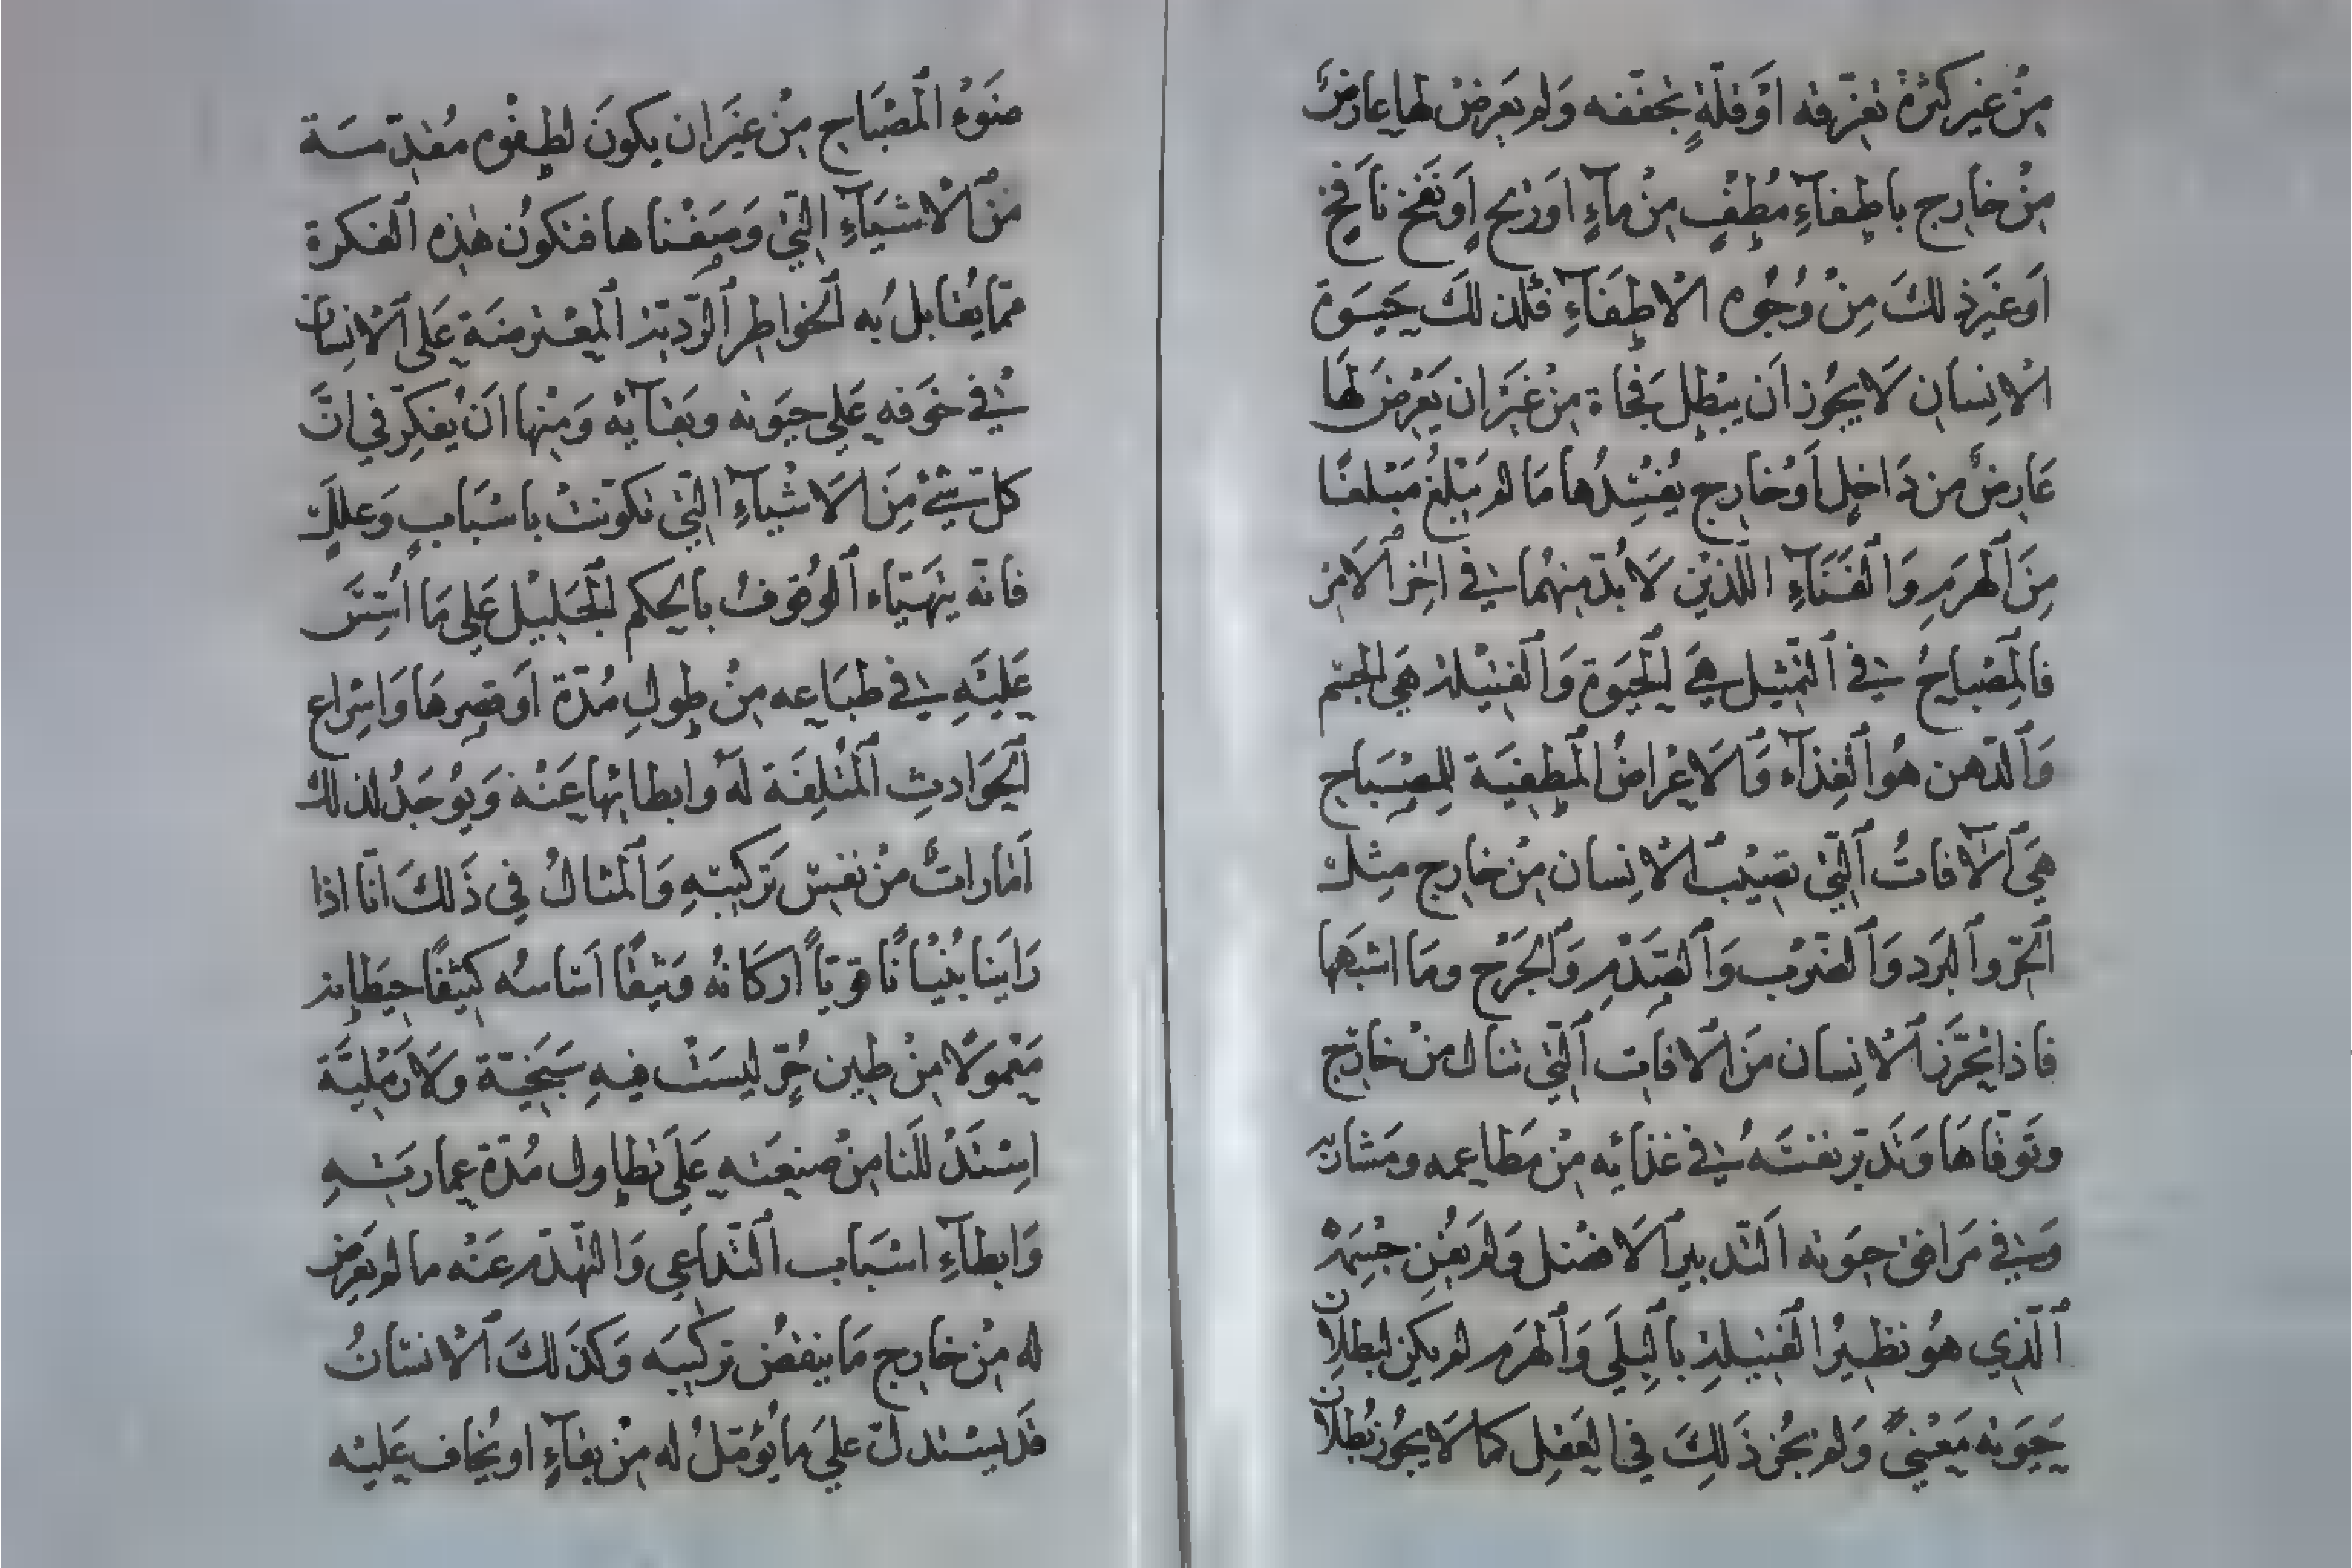 مِنْ غَيرِ كَثْرَةٍ تغرّقه اَوْ قِلَّةٍ تجفّفه وَلم يَعرِضْ لها عَارِضٌ
مِنْ خَارِج باِطفآءِ مُطْفٍ مِنْ مآءٍ اَوْ رِيحٍ اَوْ نَفْخ نَافِخ
اَوْ غَيْرِ ذلكَ مِنْ وُجُوه الْاِطفَآءِ فكذلكَ حَيَوة
الْانِسان لَا يجُوز اَن يبْطل فَجاة مِنْ غَيْرِ ان يَعْرِضَ لَهَا
عَارِضٌ من دَاخِلٍ اَوْ خَارِج يُفْسِدُها مَا لم يَبْلغْ مَبْلغًا
مِنَ اَلْهَرَمِ وَالْفَنَآءِ اللَّذيْنِ لَا بُدّ مِنهُما في اٰخِرِ اَلْاَمْرِ
فالمِصْباحُ في اَلتّمْثيل هِيَ اَلْحَيَوة وَاَلْفَتيْلة هَي الجِسْم
وَاَلدّهن هُو اَلْغِذآء وَالْاَعْرَاضُ اَلْمُطفِيَة لِلمِصْبَاحِ
هِيَ اَلْآفاتُ اَلّتي تصيْبُ اَلْانِسان مِنْ خَارِج مِثْل
اَلْحَرّ واَلْبَرد وَاَلضّرْب وَاَلصّدْمِ وَاَلْجَرْح ومَا اشبَهَها
فاذا تحَرّزَ اَلْانِسان مَنَ اَلْافات اَلّتي تنَال مِنْ خَارج
وتَوَقّاهَا وَتَدَبّر نفسَهُ في غذَائه مِنْ مَطَاعِمه ومَشاربه
وَفي مَرَافق حيَوته اَلتّدبيرَ اَلْاَفضل وَلم يَفْنِ جسْمهُ
اَلّذي هُو نظيْرُ اَلْفَتيْلة باَلْبِلَي وَاَلْهَرَمِ لم يكن لبطلان
حَيَوته مَعْنىً وَلم يجُز ذَلِكَ في العَقل كما لَا يجُوز بُطْلَان
ضَوْءُ اَلْمصْبَاح مِنْ غَيْرَ ان يكونَ لطفُوه مُقدّمة
مَنْ اَلْاَشيَآءِ الّتيْ وَصَفْناها فتكونُ هٰذِه اَلْفكرة
ممّا يُقابلُ به اَلْخواطر اَلرّديّة اَلْمعْترضَة عَلى اَلْانِسان
في خوَفه عَلي حيَوته وبَقآئه وَمِنْها اَنْ يُفكّر في انَّ
كلّ شيْءٍ مِنَ الْاَشْياءِ الّتي تكوّنتْ باسْبَابٍ وَعِللٍ
فانّه يتَهَيّاء اَلْوُقوفُ بالحكم اَلْجَليْل عَلي مَا اُسّسَ
عَليْهِ في طبَاعه مِنْ طولِ مُدّة اَو قِصرِها وَاِسْراع
اَلْحوَادثِ اَلْمُتْلِفَة لهُ وابطائها عَنْه وَيُوجَدُ لذلك
اَمَاراتٌ منْ نفسِ تَركيْبهِ وَاَلْمثالُ في ذَلكَ انّا اذا
رَاَينا بُنيْانًا قويّاً اركَانهُ وَثيقًا اَسَاسُه كثيفًا حيطانه
مَعْمولًا مِنْ طين حُرّ ليسَتْ فيهِ سَبَخيّة ولَا رَمْليَّة
اِسْتدللنا مِنْ صنعَته عَلَي تطاول مُدّة عمارتهِ
وَابطآءِ اسْبَاب اَلتّداعي وَالتّهدّم عَنْه ما لم يَعرض
له مِنْ خَارج مَا ينقضُ تركيبَه وَكذَلكَ اَلْانسَانُ
قدَ يسْتدلّ عليَ ما يُؤمّلُ له مِنْ بقآءٍ او يُخاف عَليْه